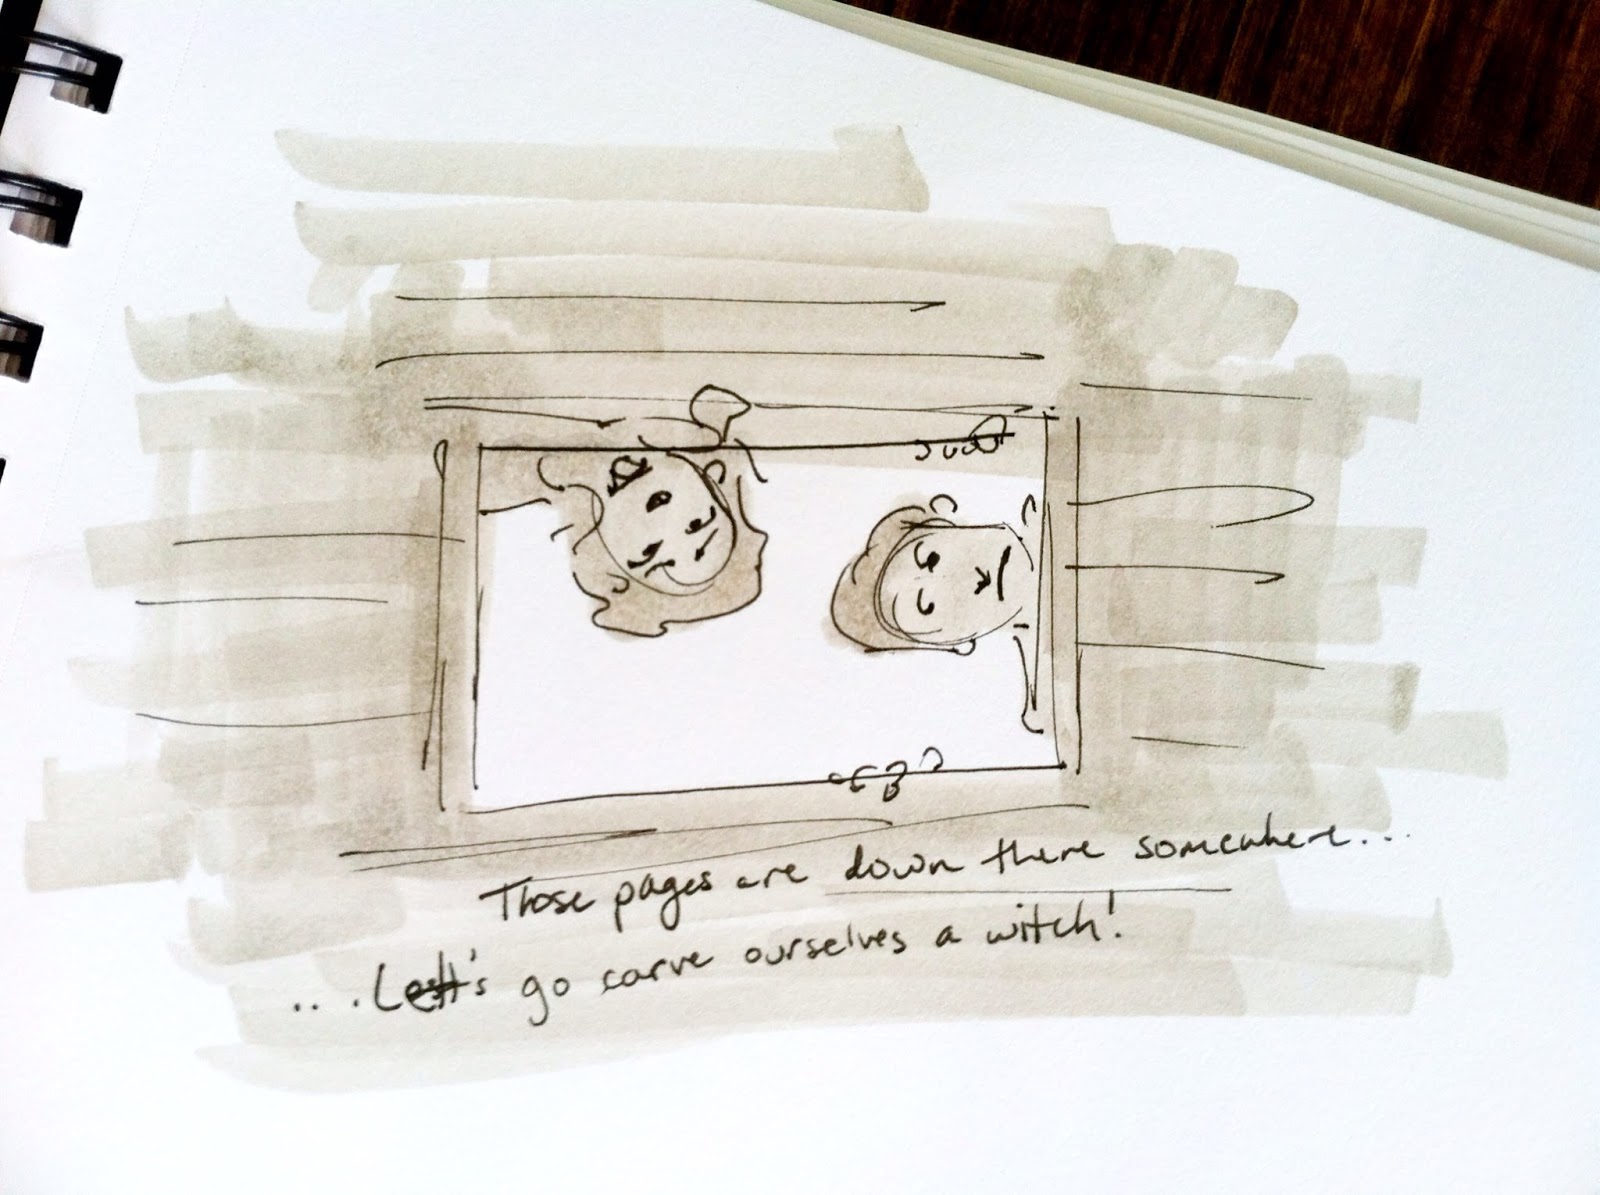 Those pages are down there somewhere...
....Let's go carve ourselves a witch!